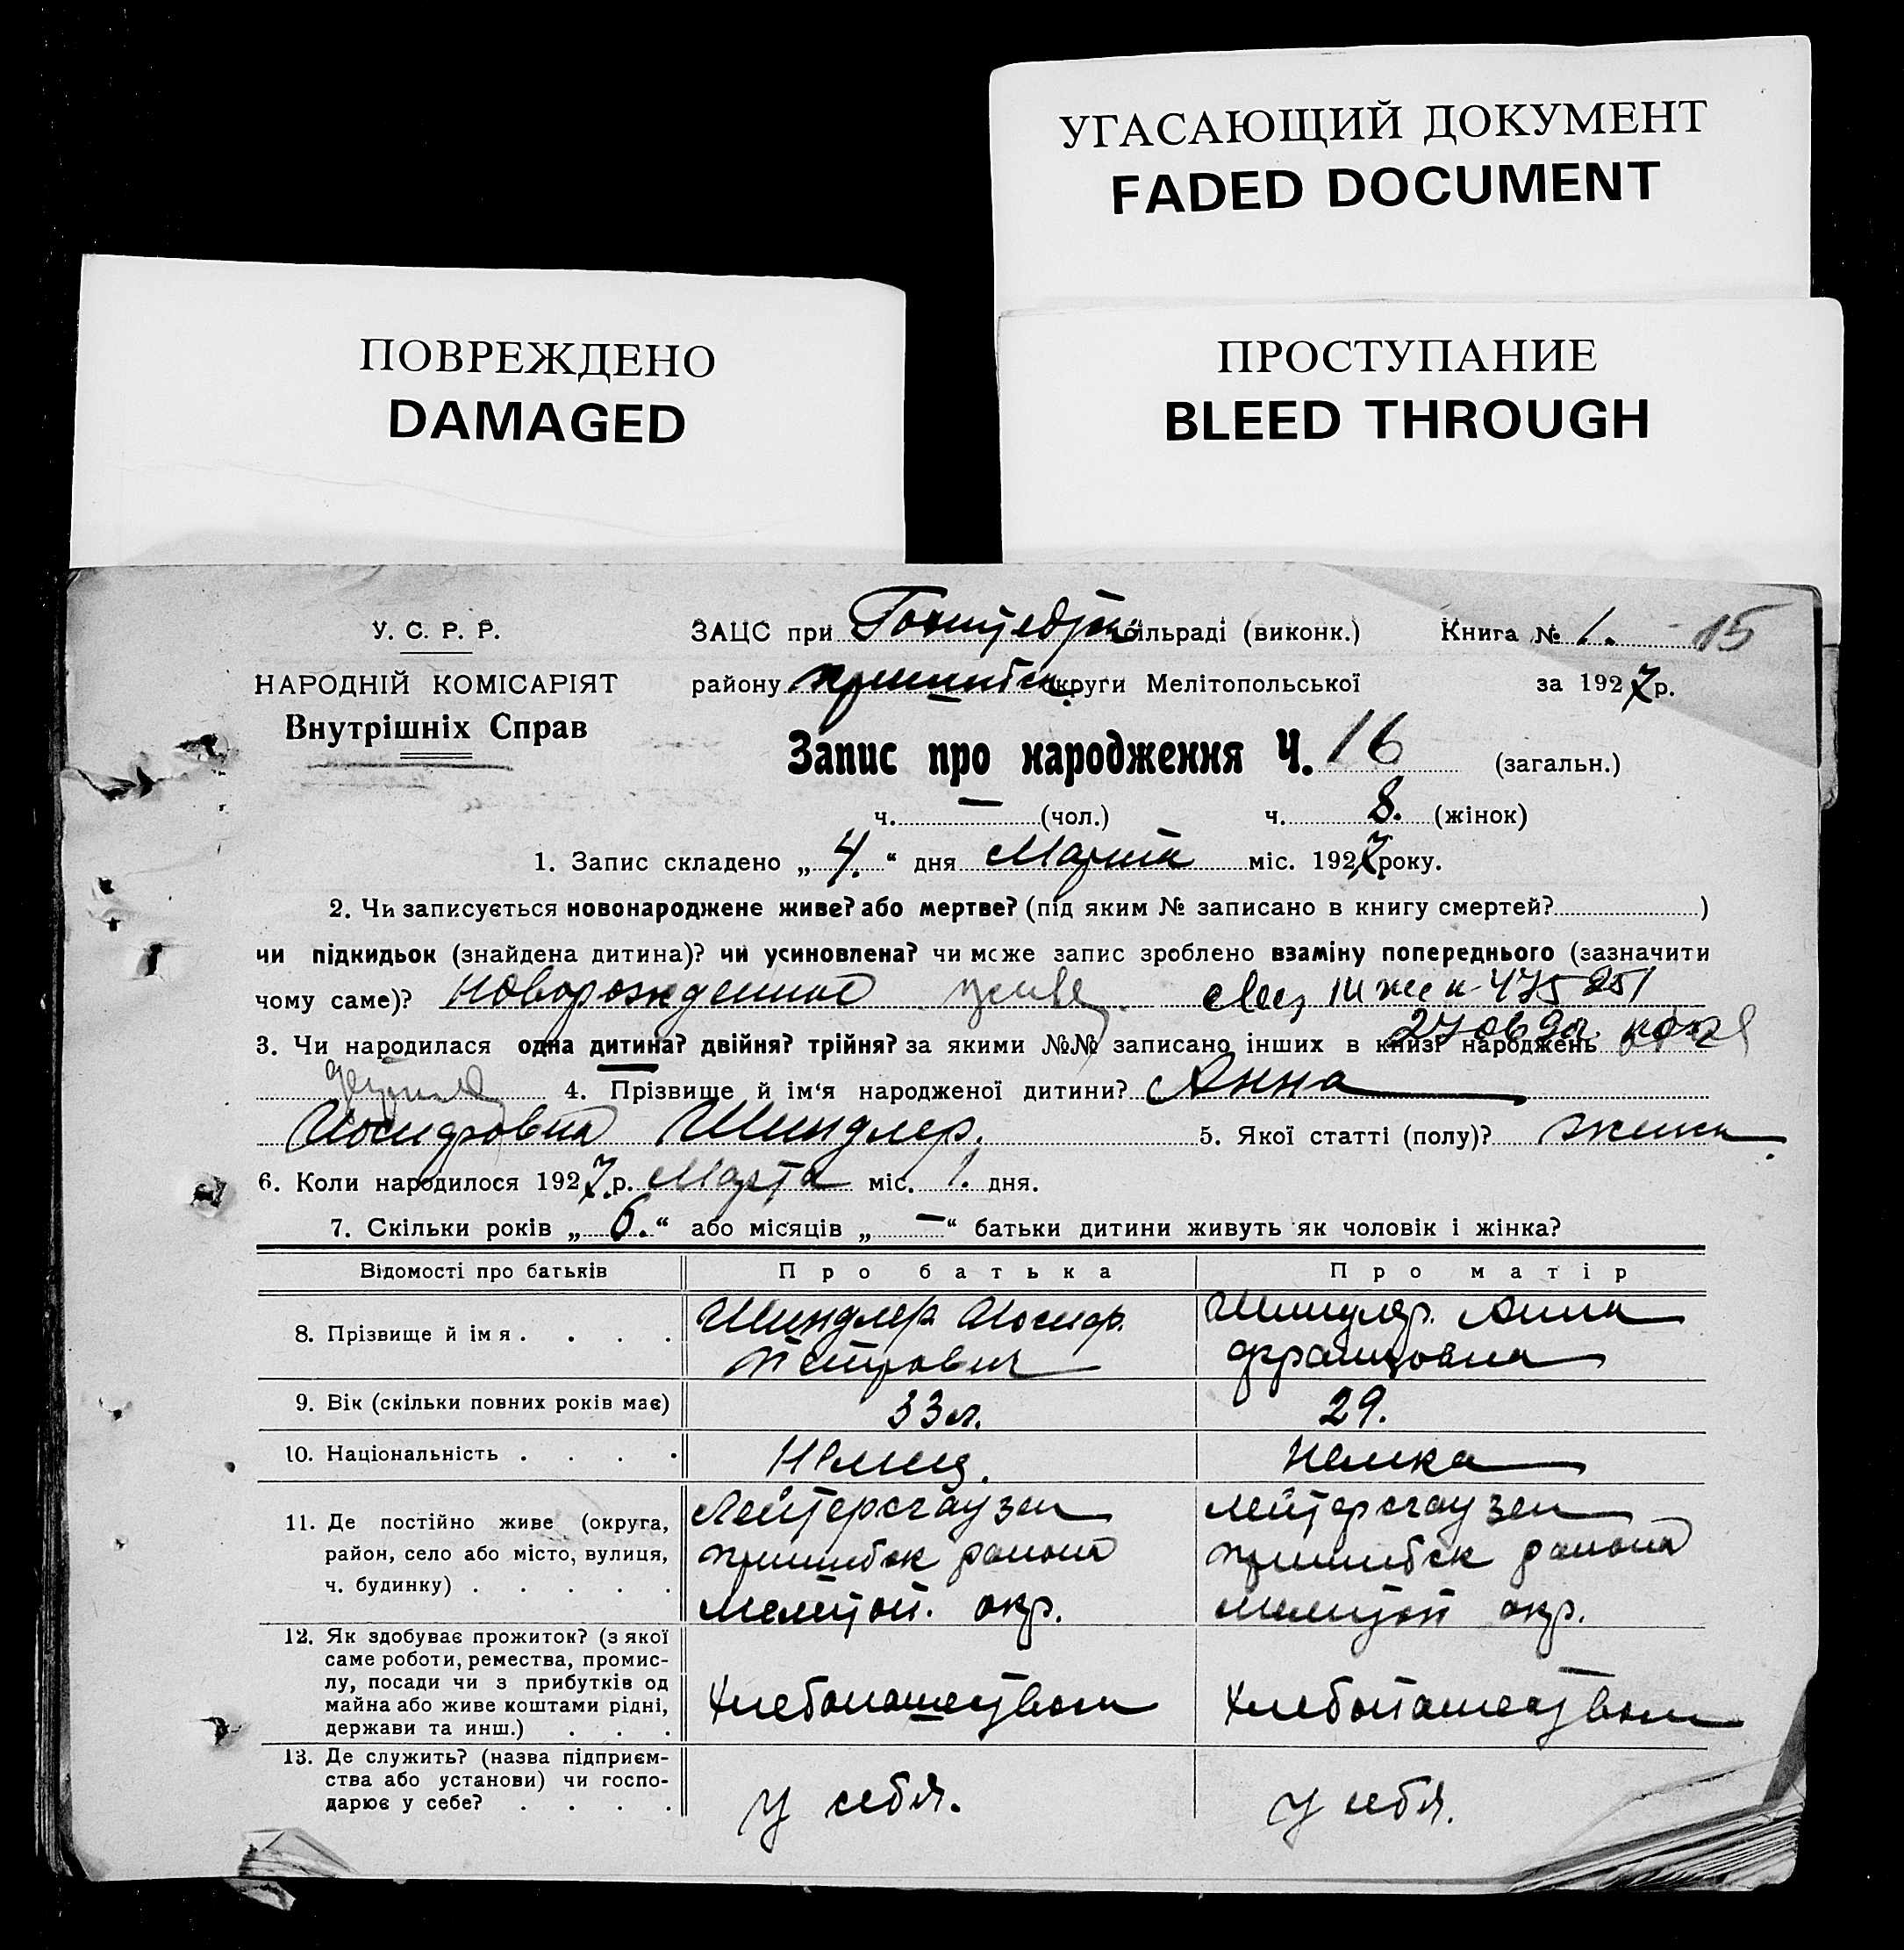 УГАСАЮЩИЙ ДОКУМЕНТ
FADED DOCUMENT
ПОВРЕЖДЕНО
DAMAGED
ПРОСТУПАНИЕ
BLEED THROUGH
У. С. Р. Р.
НАРОДНІЙ КОМІСАРІЯТ
Внутрішніх Справ
ЗАЦС при сільраді (виконк.) Книга № 1. 15
району Пришибск. округи Мелітопольської за 1927 р.
Запис про народження Ч. 16 (загальн.)
ч. — (чол.) ч. 8. (жінок)
1. Запис складено „ 4. “ дня Марта міс. 1927 року.
2. Чи записується новонароджене живе? або мертве? (під яким № записано в книгу смертей? )
чи підкидьок (знайдена дитина)? чи усиновлена? чи може запис зроблено взаміну попереднього (зазначити
чому саме)? Новорожденное живе
3. Чи народилася одна дитина? двійня? трійня? за якими №№ записано інших в книзі народжень
4. Прізвище й ім‘я народженої дитини? Анна
Иосифовна Шиндлер. 5. Якої статті (полу)? женск.
6. Коли народилося 1927. р. Марта міс. 1. дня.
7. Скільки років „ 6. “ або місяців „ — “ батьки дитини живуть як чоловік і жінка?
Відомості про батьків Про батька Про матір
8. Прізвище й ім я . . . . Шиндлер Иосиф. Петрович Шиндлер. Анна Францовна
9. Вік (скільки повних років має) 33 л. 29.
10. Національність . . . . Немец. Немка
11. Де постійно живе (округа, район, село або місто, вулиця, ч. будинку) . . . . . Лейтерсгаузен Пришибск района Мелитоп. окр. Лейтерсгаузен Пришибск района Мелитоп окр.
12. Як здобуває прожиток? (з якої саме роботи, ремества, промислу, посади чи з прибутків од майна або живе коштами рідні, держави та инш.) . . . Хлебопашеством Хлебопашеством
13. Де служить? (назва підприємства або установи) чи господарює у себе? . . . . у себя. у себя.